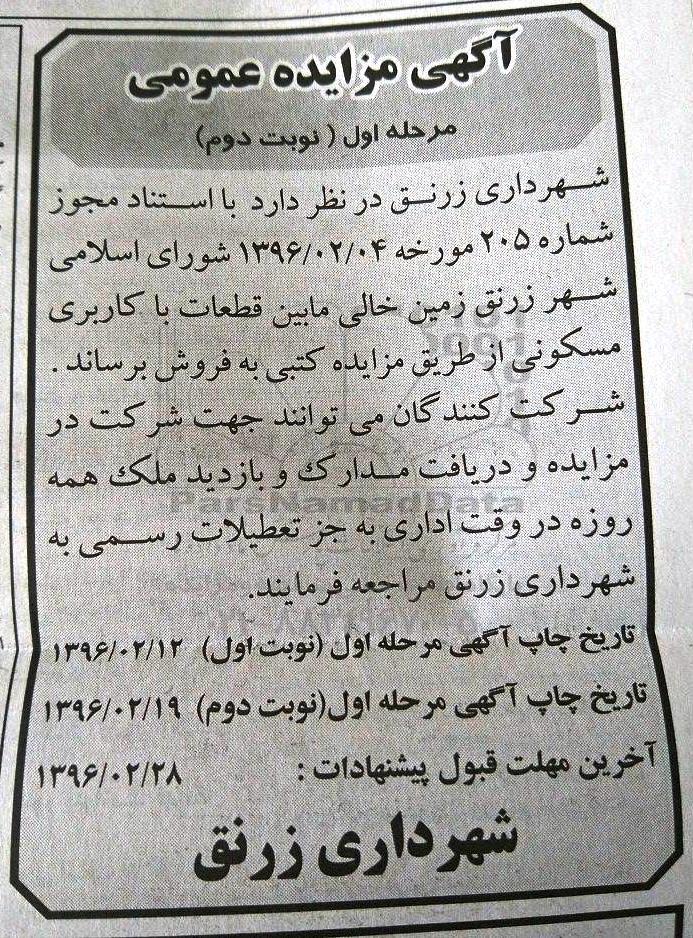 آگهی مزایده عمومی
مرحله اول ( نوبت دوم)
شهرداری زرنق در نظر دارد با استناد مجوز
شماره ۲۰۵ مورخه ۱۳۹۶/۰۲/۰۴ شورای اسلامی
شهر زرنق زمین خالی مابین قطعات با کاربری
مسکونی از طریق مزایده کتبی به فروش برساند .
شرکت کنندگان می توانند جهت شرکت در
مزایده و دریافت مدارک و بازدید ملک همه
روزه در وقت اداری به جز تعطیلات رسمی به
شهرداری زرنق مراجعه فرمایند.
تاریخ چاپ آگهی مرحله اول (نوبت اول) ۱۳۹۶/۰۲/۱۲
تاریخ چاپ آگهی مرحله اول(نوبت دوم) ۱۳۹۶/۰۲/۱۹
آخرین مهلت قبول پیشنهادات : ۱۳۹۶/۰۲/۲۸
شهرداری زرنق
ParsNamadData